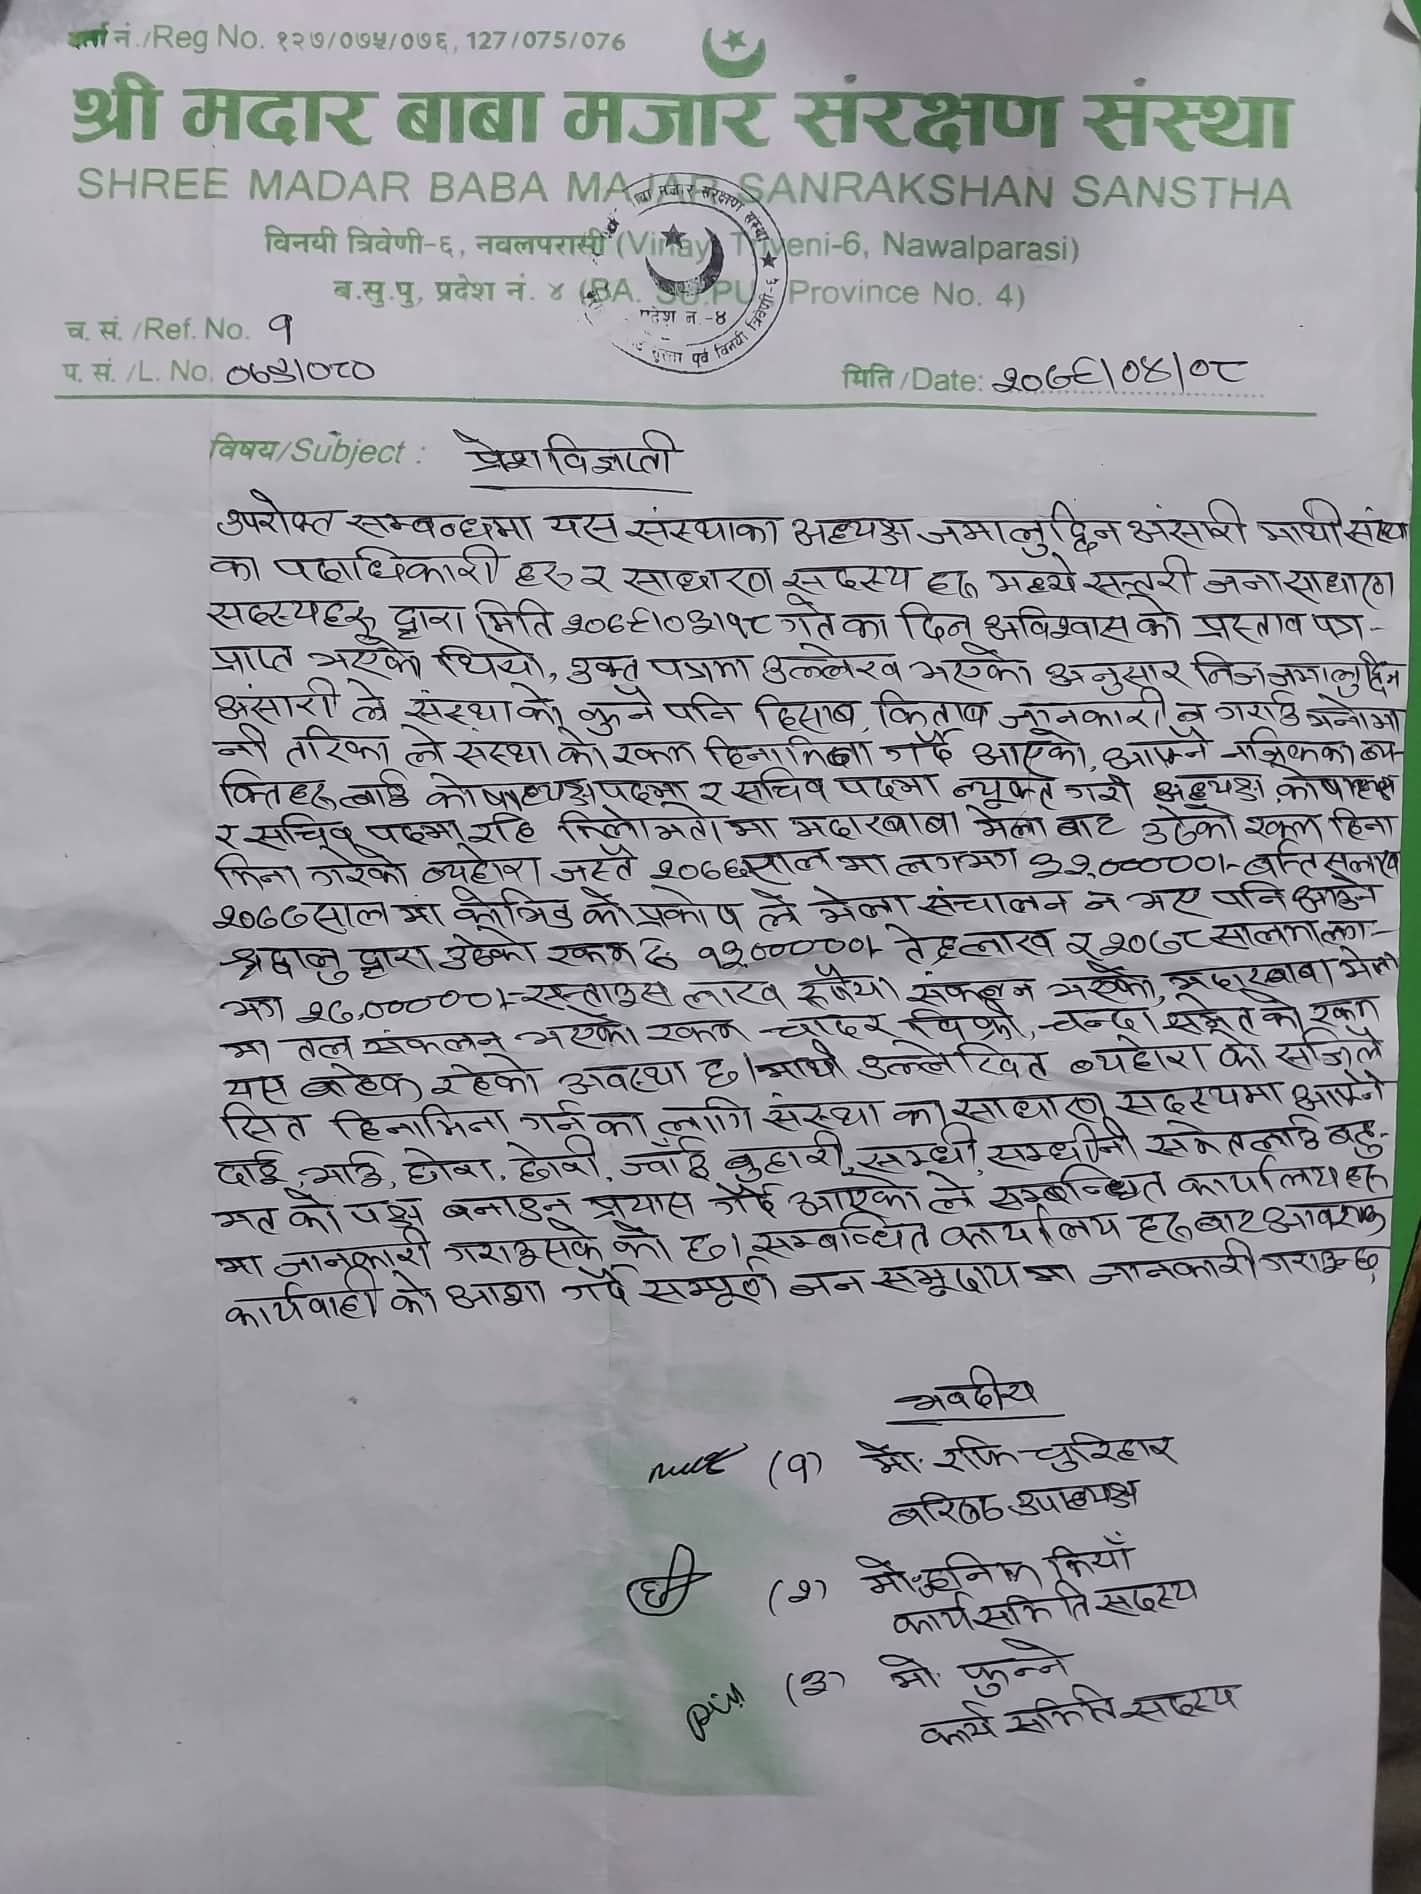 दर्ता नं./Reg No. १२७/०७५/०७६, 127/075/076
श्री मदार बाबा मजार संरक्षण संस्था
SHREE MADAR BABA MAJAR SANRAKSHAN SANSTHA
विनयी त्रिवेणी-६, नवलपरासी (Vinay Triveni-6, Nawalparasi)
ब.सु.पु, प्रदेश नं. ४ (BA. SU.PU, Province No. 4)
च. सं. /Ref. No. १
प. सं. /L. No. ०७९/०८०
मिति /Date: २०७९/०४/०८
विषय/Subject : प्रेश विज्ञप्ती
उपरोक्त सम्बन्धमा यस संस्थाका अध्यक्ष जमालुद्दिन अंसारी माथी संस्था
का पदाधिकारी हरु र साधारण सदस्य हरु मध्ये सत्तरी जना साधारण
सदस्यहरु द्वारा मिति २०७९/०३/१८ गते का दिन अविश्वास को प्रस्ताव पत्र-
प्राप्त भएको थियो, उक्त पत्रमा उल्लेख भएका अनुसार निज जमालुद्दिन
अंसारी ले संस्थाको कुनै पनि हिसाब किताब जानकारी न गराई मनोमा
नी तरिका ले संस्था को रकम हिनामिना गर्दै आएको, आफ्नै नजिकका व्य-
क्तिहरु लाई कोषाध्यक्ष पदमा र सचिव पदमा न्यूक्त गरी अध्यक्ष, कोषाध्यक्ष
र सचिव पदमा रहि मिलोमतो मा मदारबाबा मेला बाट उठेको रकम हिना
मिना गरेको व्यहोरा जस्तै २०७६ साल मा लगभग ३२,०००००।- बत्तिस लाख
२०७७ साल मा कोभिड को प्रकोप ले मेला संचालन न भए पनि आउने
श्रद्धालु द्वारा उठेको रकम रु १३,०००००।- तेह्रलाख र २०७८ सालमा लग-
भग २७,०००००।- सत्ताइस लाख रुपैया संकलन भएको, मदारबाबा मेला
मा तल संकलन भएको रकम चादर बिक्री, चन्दा समेत को रकम
यस बाहेक रहेको अवस्था छ। माथी उल्लेखित व्यहोरा को सजिलै
सित हिनामिना गर्न का लागि संस्था का साधारण सदस्यमा आफ्नै
दाई, भाई, छोरा, छोरी, ज्वाँई बुहारी, सम्धी, सम्धीनी समेतलाई बहु-
मत को पक्ष बनाउन प्रयास गर्दै आएको ले सम्बन्धित कार्यालय हरु
मा जानकारी गराइसके को छ। सम्बन्धित कार्यालय हरु बाट आवश्यक
कार्यवाही को आशा गर्दै सम्पूर्ण जन समुदाय मा जानकारी गराउछु
भवदीय
(१) मो. रफि चुरिहार
बरिष्ठ उपाध्यक्ष
(२) मो. हनिफ मियाँ
कार्य समिति सदस्य
(३) मो. फुन्ने
कार्य समिति सदस्य